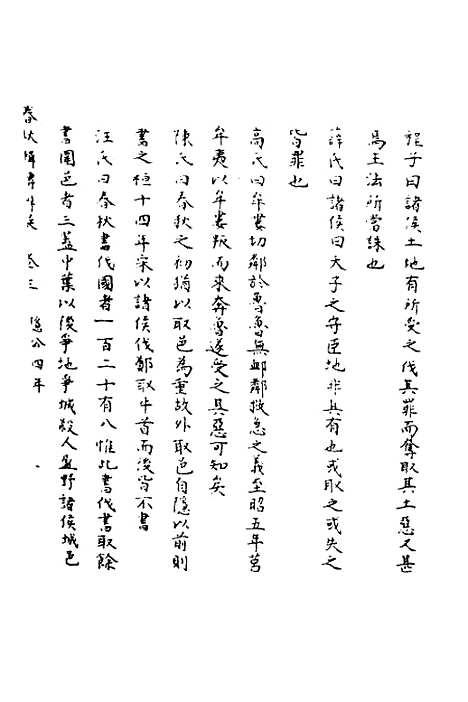 程子曰諸侯土地有所受之伐其罪而奪取其土惡又甚
焉王法所當誅也
薛氏曰諸侯曰天子之守臣地非其有也或取之或失之
皆罪也
高氏曰牟婁切鄰於魯魯無卹鄰救急之義至昭五年莒
牟夷以牟婁叛而來奔魯遂受之其惡可知矣
陳氏曰春秋之初猶以取邑為重故外取邑自隱以前則
書之桓十四年宋以諸侯伐鄭取牛首而後皆不書
汪氏曰春秋書伐國者一百二十有八惟此書伐書取餘
書圍邑者三蓋中葉以後爭地爭城殺人盈野諸侯城邑
春秋 卷三 隱公四年